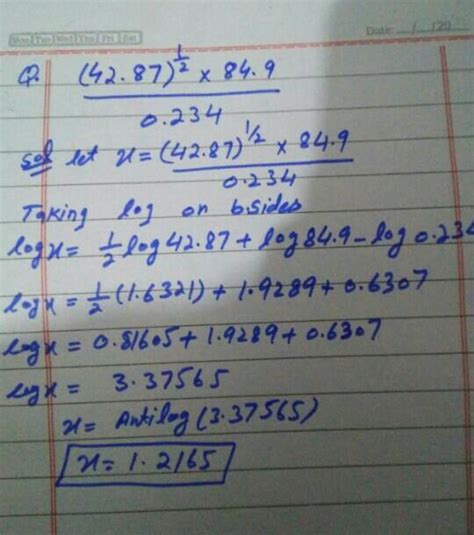 Mon Tue Wed Thu Fri Sat
Date: / /20
Q. (42.87)^1/2 × 84.9
0.234
Sol let x = (42.87)^1/2 × 84.9
0.234
Taking log on b.sides
logx = 1/2 log 42.87 + log 84.9 - log 0.234
logx = 1/2 (1.6321) + 1.9289 + 0.6307
logx = 0.81605 + 1.9289 + 0.6307
logx = 3.37565
x = Antilog (3.37565)
x = 1.2165